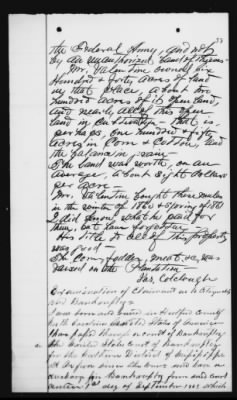 the Federal Army, and not
by an unauthorized band of
Mr. Valentine owned six
Hundred & forty acres of land
in that place, about two
hundred acres of it open land,
and nearly all of this open
land in cultivation - that is,
perhaps, one hundred & fifty
acres in Corn & Cotton, and
the balance in
The land was worth, on an
average, about Eight dollars
per acre.
Mr. Valentine bought these mules
in the winter of 1862 & Spring of 1863
I did know what he paid for
them, but have forgotten
His title to all of this property
was good -
The Corn, fodder, meat &c, was
raised on the Plantation -
Jas. Colclough
Examination of Claimant as to
and Bankruptcy
I was born and raised in Hertford County
North Carolina United States of America
in Court of Bankruptcy
the United States Court of Bankruptcy
for the Northern District of Mississippi
at Oxford since the war and have a
discharge in Bankruptcy from said court
dated 7th day of September 1868 which